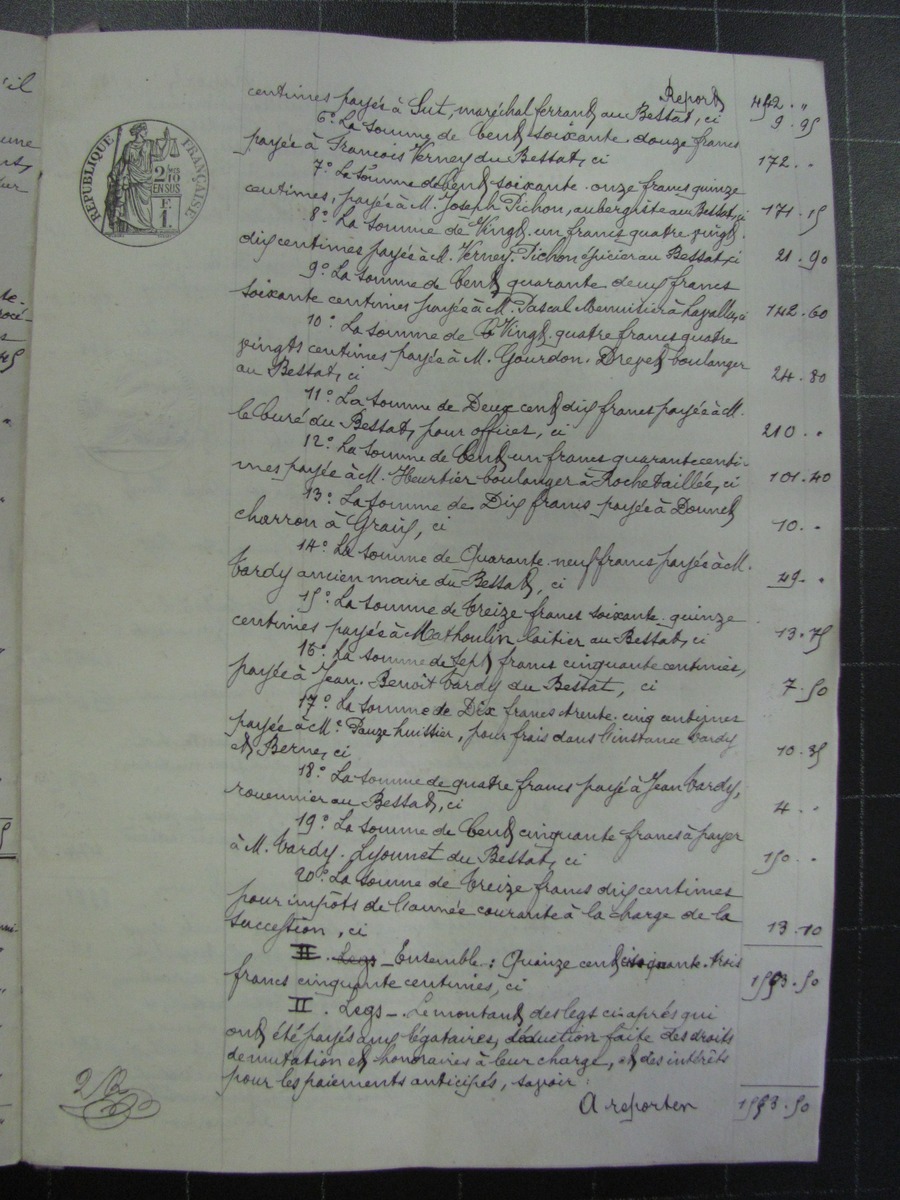 Report 452 . "
centimes payés à Sut, maréchal ferrant au Bessat, ci 9 . 95
6° La somme de Cent soixante-douze francs
payée à François Verney du Bessat, ci 172 . "
7° La somme de Cent soixante-onze francs quinze
centimes, payée à M. Joseph Pichon, aubergiste au Bessat, ci 171 . 15
8° La somme de Vingt-un francs quatre-vingt-
dix centimes payée à M. Verney-Pichon épicier au Bessat, ci 21 . 90
9° La somme de Cent quarante-deux francs
soixante centimes payée à M. Pascal Menuisier à Lavalla, ci 142 . 60
10° La somme de Vingt-quatre francs quatre
vingts centimes payée à M. Gourdon-Drevet boulanger
au Bessat, ci 24 . 80
11° La somme de Deux cent dix francs payée à M.
le Curé du Bessat, pour offices, ci 210 . "
12° La somme de Cent un francs quarante centi-
mes payée à M. Heurtier boulanger à Rochetaillée, ci 101 . 40
13° La somme de Dix francs payée à Donnet
charron à Graix, ci 10 . "
14° La somme de Quarante-neuf francs payés à M.
Tardy ancien maire du Bessat, ci 49 . "
15° La somme de Treize francs soixante-quinze
centimes payée à Mathoulin laitier au Bessat, ci 13 . 75
16° La somme de Sept francs cinquante centimes,
payée à Jean-Benoît Tardy du Bessat, ci 7 . 50
17° La somme de Dix francs trente-cinq centimes
payée à Me Pauze huissier, pour frais dans l'instance Tardy
et Berne, ci 10 . 35
18° La somme de quatre francs payé à Jean Tardy,
rouennier au Bessat, ci 4 . "
19° La somme de Cent cinquante francs à payer
à M. Tardy-Lyonnet du Bessat, ci 150 . "
20° La somme de Treize francs dix centimes
pour impôts de l'année courante à la charge de la
succession, ci 13 . 10
II Legs - Ensemble : Quinze cent cinquante-trois
francs cinquante centimes, ci 1553 . 50
II . Legs - . Le montant des legs ci-après qui
ont été payés aux légataires, déduction faite des droits
de mutation et honoraires à leur charge, et des intérêts
pour les paiements anticipés, savoir :
A reporter 1553 . 50
RÉPUBLIQUE FRANÇAISE
2/10
EN SUS
F.
1